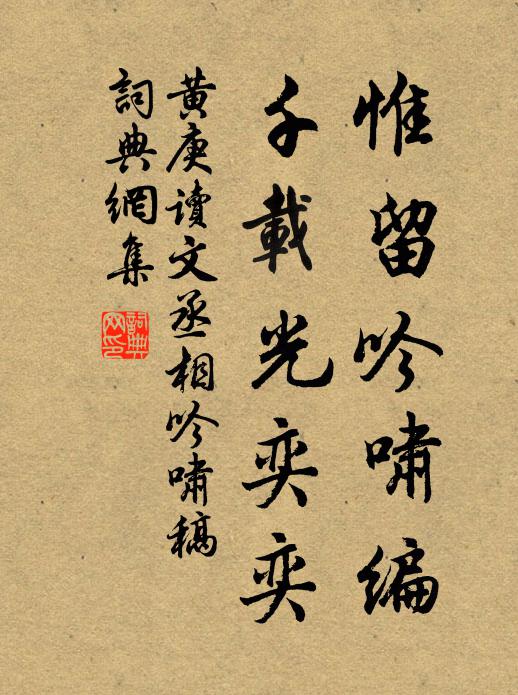 惟留吟嘯編
千載光奕奕
黃庚读文丞相吟嘯稿
詞典網集
詞典网印